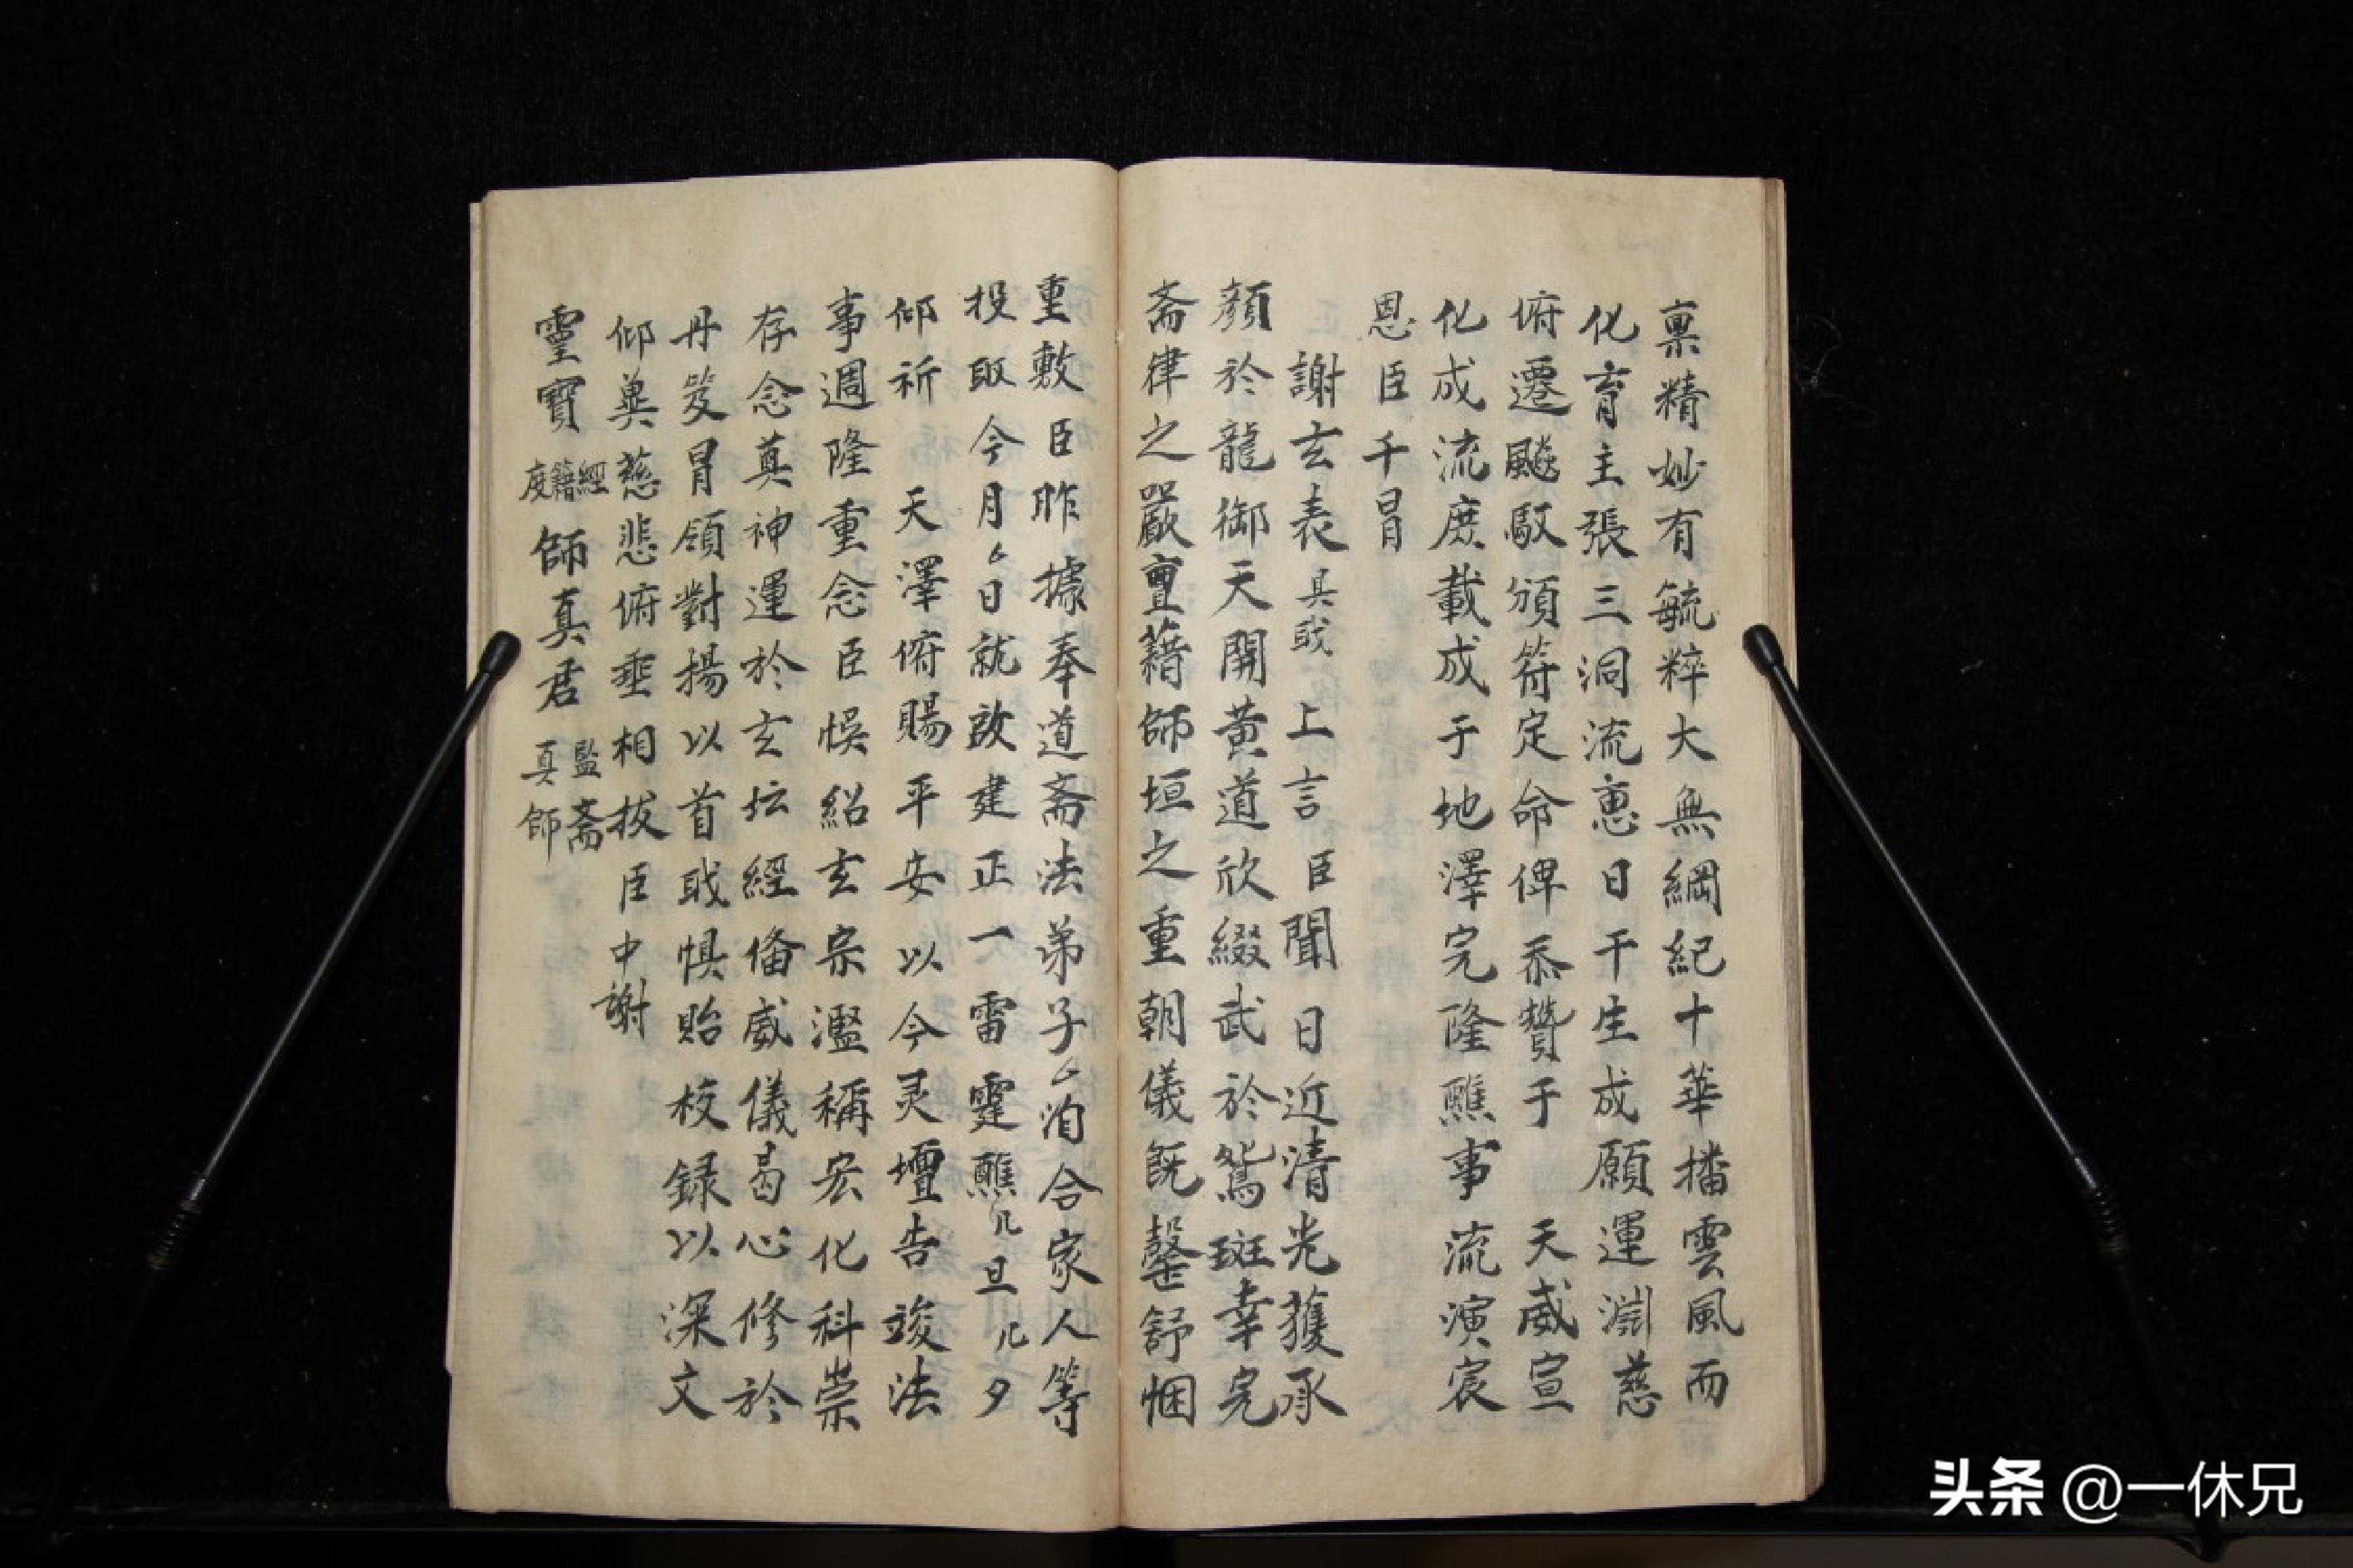 禀精妙有毓粹大無綱紀十華播雲風而
化育主張三洞流惠日干生成願運淵慈
俯遷飈馭頒符定命俾忝贊于 天威宣
化成流庶載成于地澤完隆醮事流演宸
恩臣千冒
謝玄表 具職 上言 臣聞 日近清光獲承
顏於龍御天開黃道欣綴武於鴛班幸完
斋律之嚴亶藉師垣之重朝儀既罄舒悃
重敷臣昨據奉道斋法弟子厶洎合家人等
投取今月厶日就啟建正一雷霆醮几旦几夕
仰祈 天澤俯賜平安以今灵壇告竣法
事週隆重念臣悞紹玄宗濫稱宏化科崇
存念真神運於玄坛經俻威儀曷心修於
丹笈冒領對揚以首戢惧貽校録以深文
仰兾慈悲俯垂相拔臣中謝
靈寶 經籍度 師真君 監斋真師
头条 @一休兄